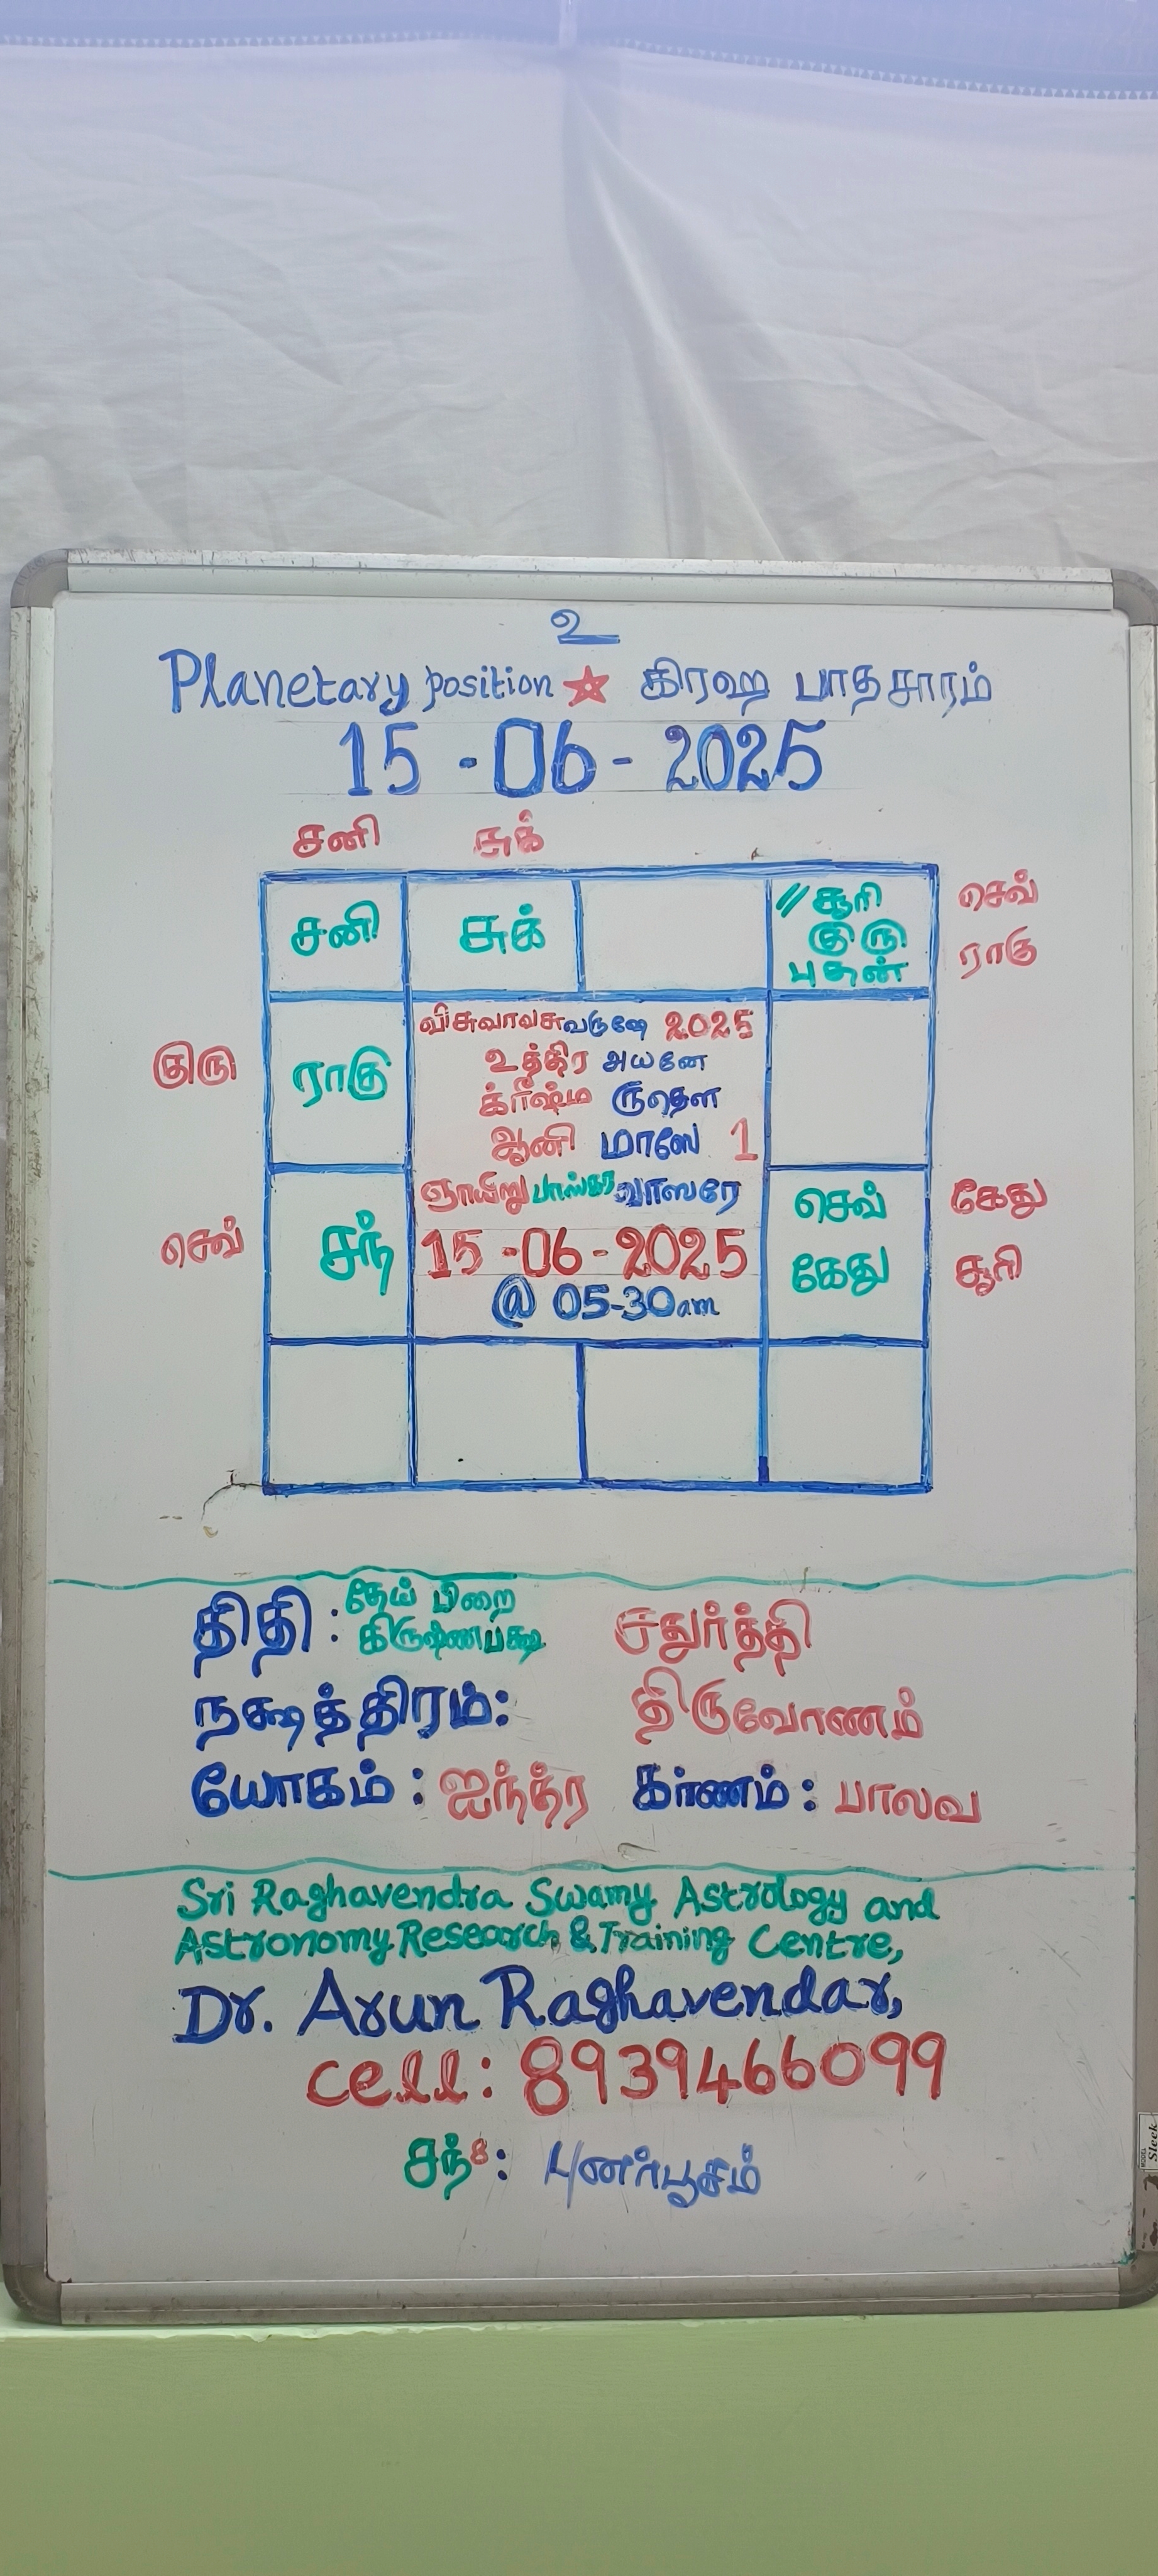 உ
Planetary position ☆ கிரஹ பாதசாரம்
15 -06 - 2025
சனி சுக்
சனி சுக் // சூரி செவ்
குரு ராகு
புதன்
விசுவாவசுவருஷே 2025
உத்திர அயனே
குரு ராகு க்ரீஷ்ம ருதௌ
ஆனி மாஸே 1
ஞாயிறு பாஸ்கர வாஸரே செவ் கேது
செவ் சந் 15 -06-2025 கேது சூரி
@ 05-30am
திதி : தேய் பிறை சதுர்த்தி
கிருஷ்ணபக்ஷ
நக்ஷத்திரம்: திருவோணம்
யோகம் : ஐந்த்ர கர்ணம் : பாலவ
Sri Raghavendra Swamy Astrology and
Astronomy Research & Training Centre,
Dr. Arun Raghavendar,
cell: 8939466099
சந்8: புனர்பூசம்